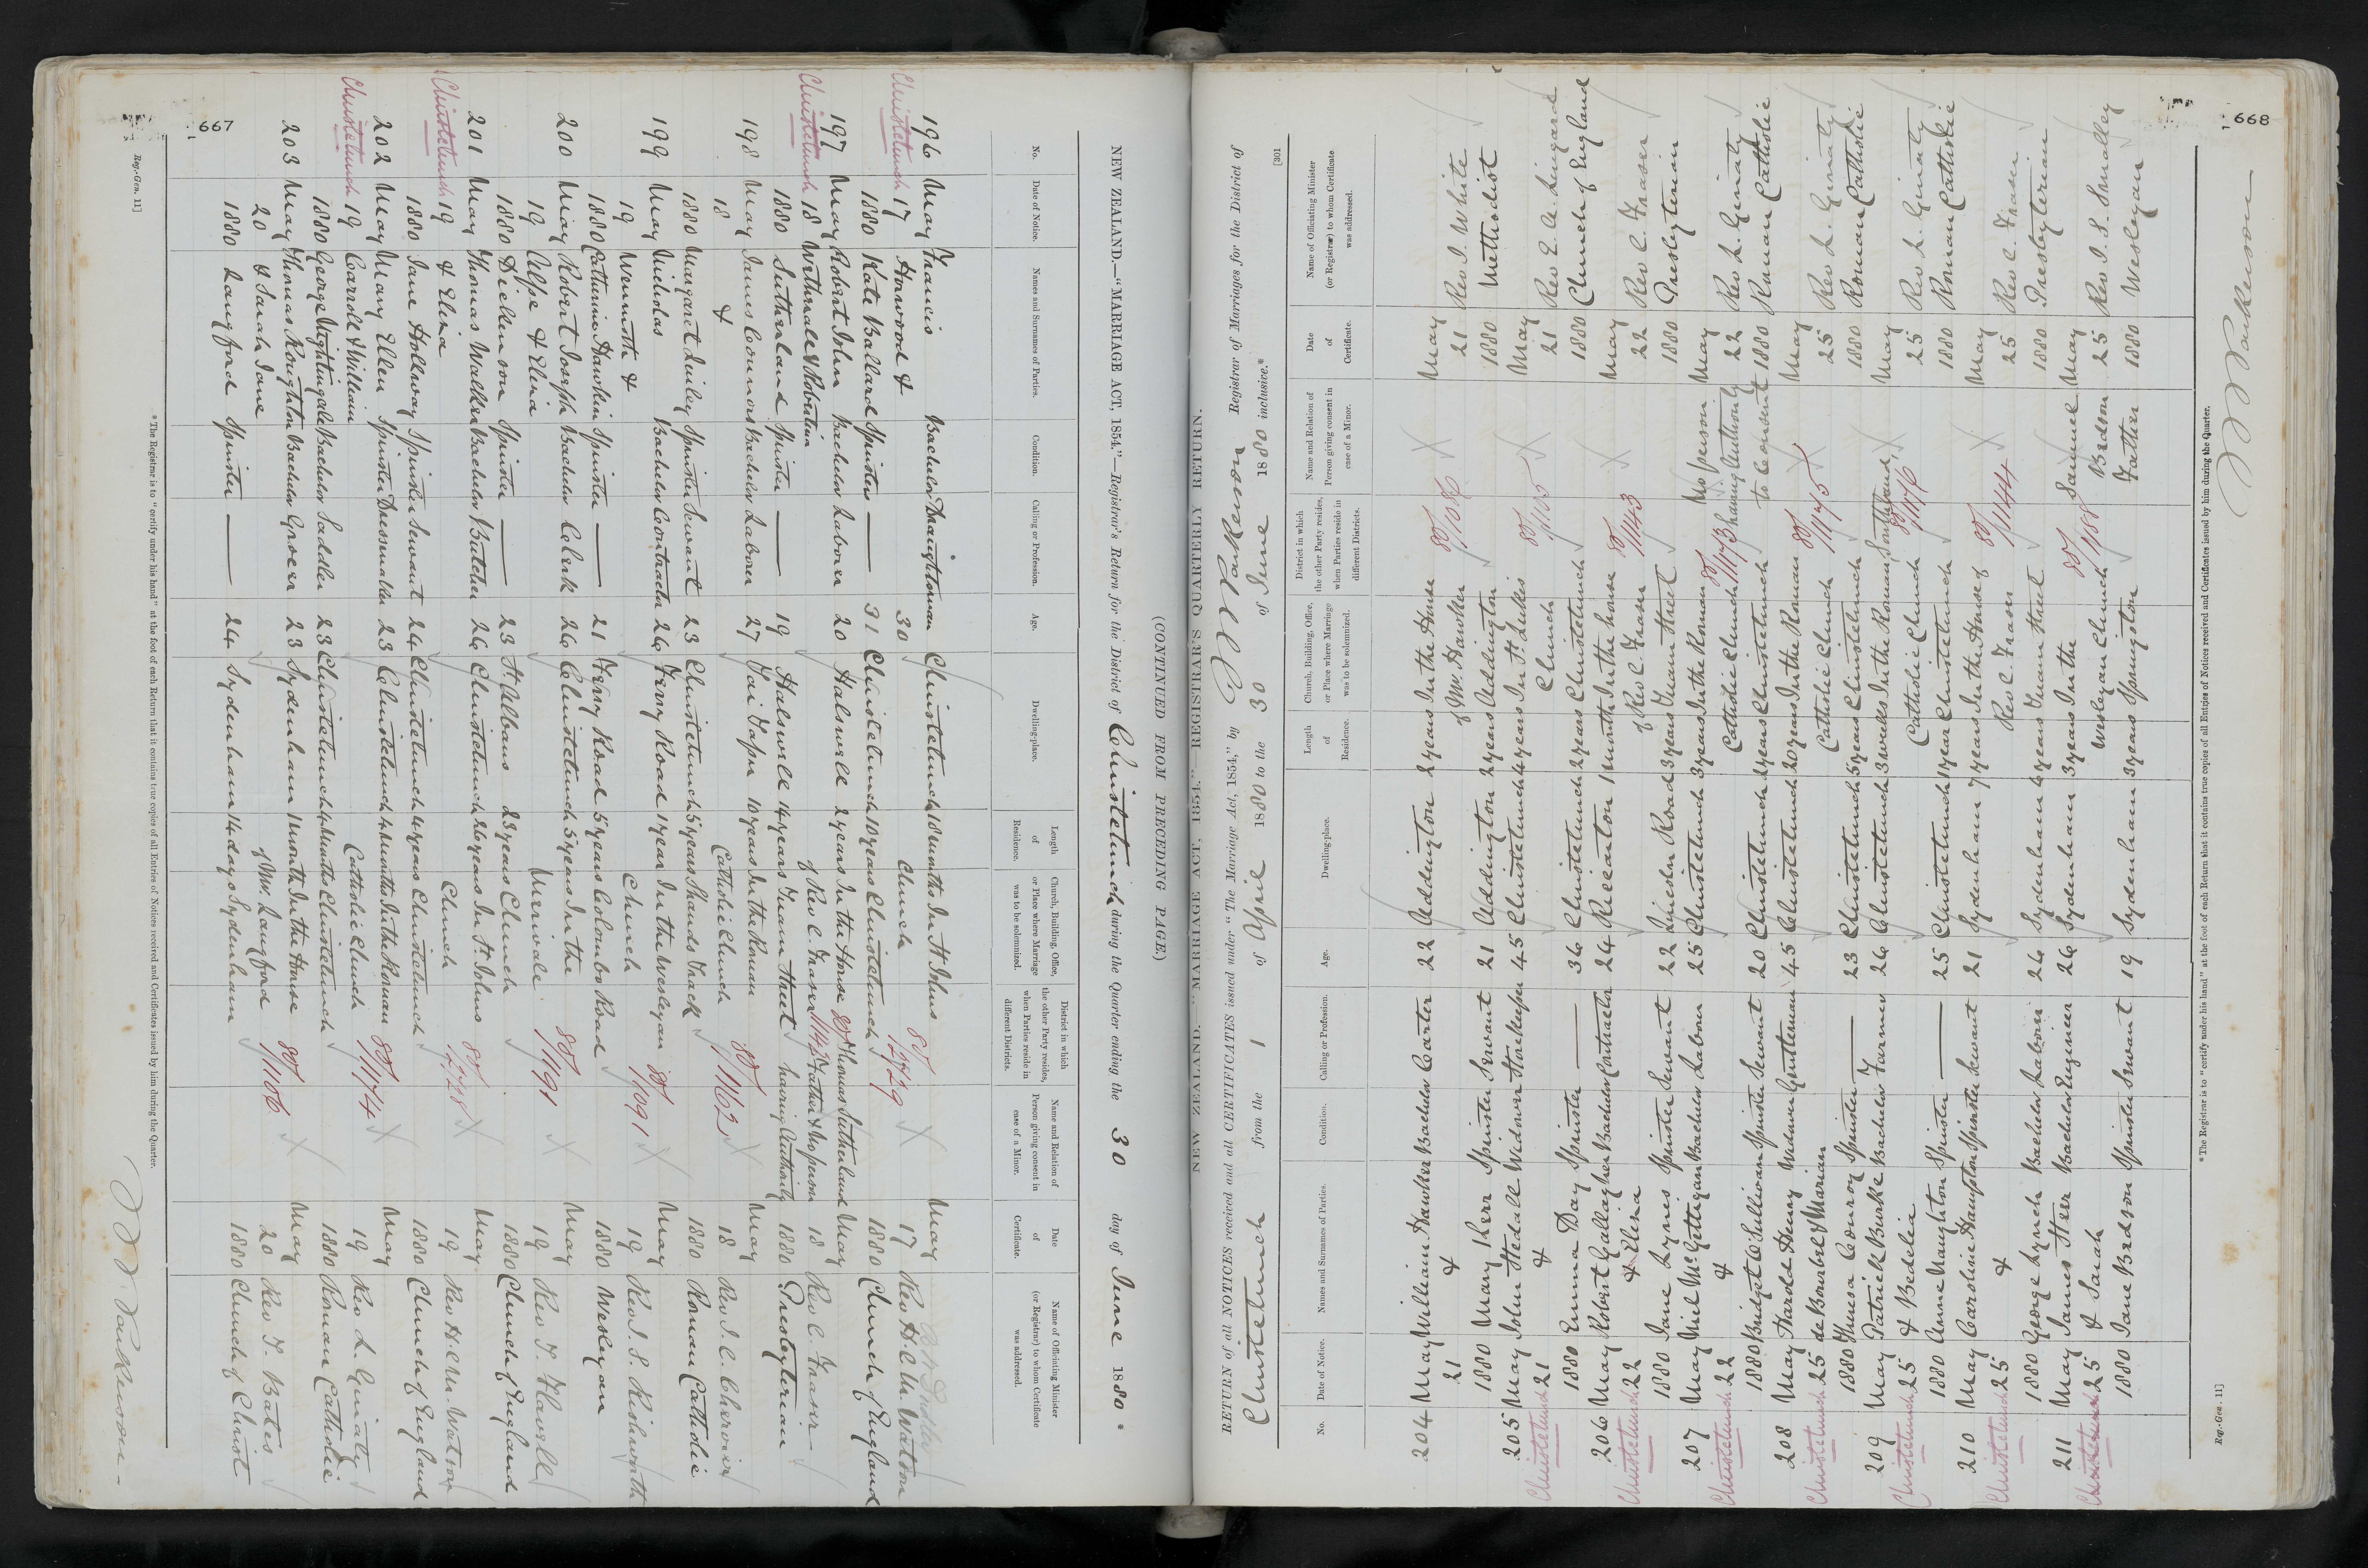 667
NEW ZEALAND.—"MARRIAGE ACT, 1854."—Registrar's Return for the District of Christchurch during the Quarter ending the 30 day of June 1880 *
No. Date of Notice. Names and Surnames of Parties. Condition. Calling or Profession. Age. Dwelling-place. Length of Residence. Church, Building, Office, or Place where Marriage was to be solemnized. District in which the other Party resides, when Parties reside in different Districts. Name and Relation of Person giving consent in case of a Minor. Date of Certificate. Name of Officiating Minister (or Registrar) to whom Certificate was addressed.
196 May Francis Bachelor Draughtsman Christchurch 18 months In St Johns 80/ May
Christchurch 17 Horwood & 30 Church /2729 X 17 Rev H.C.M. Watson
1880 Kate Ballard Spinster — 31 Christchurch 10 years Christchurch 1880 Church of England
197 May Robert John Bachelor Laborer 20 Halswell 2 years In the House Thomas Sutherland May
Christchurch 18 Wethrale & Robertina of Rev C. Fraser Father & No person 18 Rev C. Fraser
1880 Sutherland Spinster — 19 Halswell 14 years Tuam Street having Authority 1880 Presbyterian
198 May James Connors Bachelor Laborer 27 Tai Tapu 10 years In the Roman 80/ May
18 & Catholic Church /1162 X 18 Rev J.C. Chervier
1880 Margaret Quiley Spinster Servant 23 Christchurch 5 years Shands Track 1880 Roman Catholic
199 May Nicholas Bachelor Contractor 26 Ferry Road 1 year In the Wesleyan 80/ May
19 Wermoth & Church /1091 X 19 Rev J.S. Rishworth
1880 Catherine Hawkin Spinster — 21 Ferry Road 5 years Colombo Road 1880 Wesleyan
200 May Robert Joseph Bachelor Clerk 26 Christchurch 5 years In the 80/ May
19 Alpe & Eliza Merivale /1191 X 19 Rev T. Flavell
1880 Dickenson Spinster — 23 St Albans 23 years Church 1880 Church of England
201 May Thomas Walker Bachelor Butcher 26 Christchurch 26 years In St Johns 80/ May
Christchurch 19 & Eliza Church /2728 X 19 Rev H.C.M. Watson
1880 Jane Hollway Spinster Servant 24 Christchurch 4 years Christchurch 1880 Church of England
202 May Mary Ellen Spinster Dressmaker 23 Christchurch 4 months In the Roman 80/ May
Christchurch 19 Carroll & William Catholic Church /1174 X 19 Rev L. Ginaty
1880 George Nightingale Bachelor Saddler 23 Christchurch 4 months Christchurch 1880 Roman Catholic
203 May Thomas Roughton Bachelor Grocer 23 Sydenham 1 month In the House 80/ May
20 & Sarah Jane of Mr. Langford /1106 X 20 Rev T. Bates
1880 Langford Spinster — 24 Sydenham 14 days Sydenham 1880 Church of Christ
* The Registrar is to "certify under his hand" at the foot of each Return that it contains true copies of all Entries of Notices received and Certificates issued by him during the Quarter.
Reg.-Gen. 11]
(CONTINUED FROM PRECEDING PAGE)
668
[301
NEW ZEALAND.—"MARRIAGE ACT, 1854."—REGISTRAR'S QUARTERLY RETURN.
RETURN of all NOTICES received and all CERTIFICATES issued under "The Marriage Act, 1854," by Parkerson Registrar of Marriages for the District of
Christchurch from the 1 of April 1880 to the 30 of June 1880 inclusive.*
No. Date of Notice. Names and Surnames of Parties. Condition. Calling or Profession. Age. Dwelling-place. Length of Residence. Church, Building, Office, or Place where Marriage was to be solemnized. District in which the other Party resides, when Parties reside in different Districts. Name and Relation of Person giving consent in case of a Minor. Date of Certificate. Name of Officiating Minister (or Registrar) to whom Certificate was addressed.
204 May William Hawker Bachelor Carter 22 Addington 2 years In the House 80/ May
21 & of Mr. Hawker /1086 X 21 Rev J. White
1880 Mary Kerr Spinster Servant 21 Addington 2 years Addington 1880 Methodist
205 May John Stedall Widower Storekeeper 45 Christchurch 4 years In St Lukes 80/ May
Christchurch 21 & Church X 21 Rev E.A. Lingard
1880 Emma Day Spinster — 36 Christchurch 2 years Christchurch 1880 Church of England
206 May Robert Gallagher Bachelor Contractor 24 Riccarton 1 month In the house 80/ May
Christchurch 22 & Eliza of Rev C. Fraser /1143 X 22 Rev C. Fraser
1880 Jane Lynes Spinster Servant 22 Lincoln Road 3 years Tuam Street 1880 Presbyterian
207 May Niel McGettigan Bachelor Labour 25 Christchurch 3 years In the Roman 80/ No person May
Christchurch 22 & Catholic Church /1173 having Authority 22 Rev L. Ginaty
1880 Bridget O'Sullivan Spinster Servant 20 Christchurch 2 years Christchurch to Consent 1880 Roman Catholic
208 May Harold Henry Widower Gentleman 45 Christchurch 20 years In the Roman 80/ May
Christchurch 25 de Bourbel & Marian Catholic Church /1175 X 25 Rev L. Ginaty
1880 Theresa Conroy Spinster — 23 Christchurch 5 years Christchurch 1880 Roman Catholic
209 May Patrick Burke Bachelor Farmer 26 Christchurch 3 weeks In the Roman Southland May
Christchurch 25 & Bedelia Catholic Church 80/1176 X 25 Rev L. Ginaty
1880 Anne Naughton Spinster — 25 Christchurch 1 year Christchurch 1880 Roman Catholic
210 May Caroline Hampton Spinster Servant 21 Sydenham 7 years In the House of 80/ May
Christchurch 25 & Rev C. Fraser /1144 X 25 Rev C. Fraser
1880 George Lynch Bachelor Laborer 26 Sydenham 4 years Tuam Street 1880 Presbyterian
211 May James Herr Bachelor Engineer 26 Sydenham 3 years In the 80/ Samuel May
Christchurch 25 & Sarah Wesleyan Church /1188 Bedson 25 Rev J.S. Smalley
1880 Jane Bedson Spinster Servant 19 Sydenham 3 years Springston Father 1880 Wesleyan
* The Registrar is to "certify under his hand" at the foot of each Return that it contains true copies of all Entries of Notices received and Certificates issued by him during the Quarter.
Parkerson
Reg.-Gen. 11]